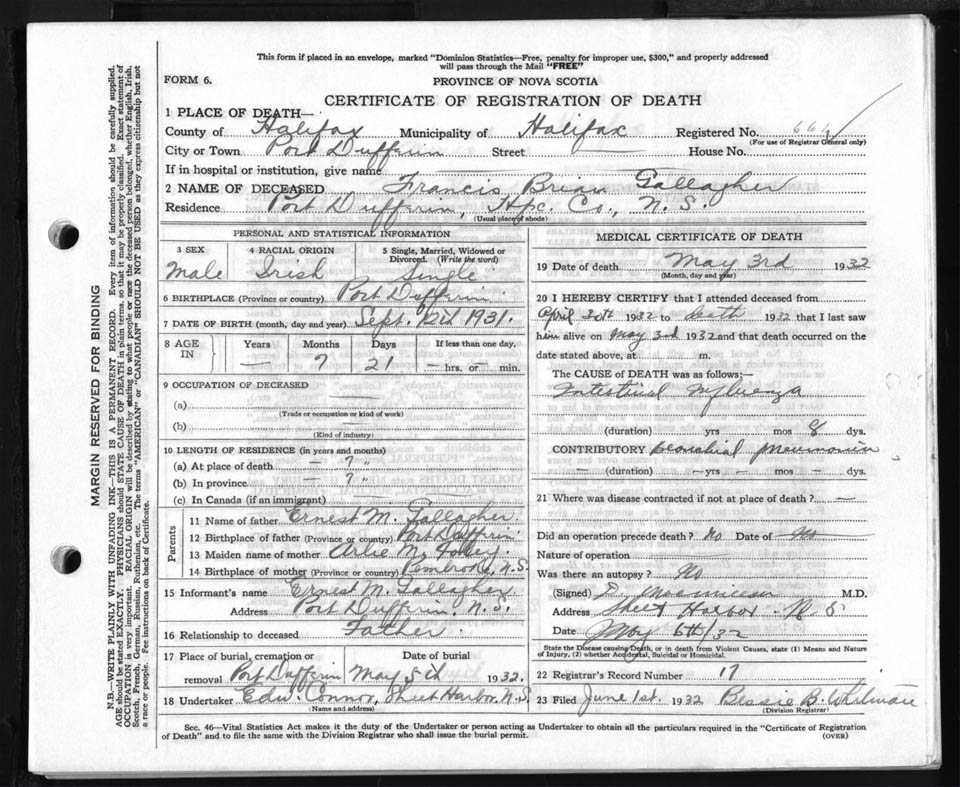 This form if placed in an envelope, marked "Dominion Statistics—Free, penalty for improper use, $300," and properly addressed
will pass through the Mail "FREE"
FORM 6.
PROVINCE OF NOVA SCOTIA
CERTIFICATE OF REGISTRATION OF DEATH
1 PLACE OF DEATH—
County of Halifax Municipality of Halifax Registered No. 661
(For use of Registrar General only)
City or Town Port Dufferin Street House No.
If in hospital or institution, give name
2 NAME OF DECEASED Francis Brian Gallagher
Residence Port Dufferin, Hfx. Co., N. S.
(Usual place of abode)
PERSONAL AND STATISTICAL INFORMATION
3 SEX 4 RACIAL ORIGIN 5 Single, Married, Widowed or
Divorced. (Write the word)
Male Irish Single
6 BIRTHPLACE (Province or country) Port Dufferin
7 DATE OF BIRTH (month, day and year) Sept. 12th 1931.
8 AGE IN Years Months Days If less than one day,
— 7 21 — hrs. or — min.
9 OCCUPATION OF DECEASED
(a)
(Trade or occupation or kind of work)
(b)
(Kind of industry)
10 LENGTH OF RESIDENCE (in years and months)
(a) At place of death — 7 "
(b) In province — 7 "
(c) In Canada (if an immigrant)
Parents
11 Name of father Ernest M. Gallagher
12 Birthplace of father (Province or country) Port Dufferin
13 Maiden name of mother M.
14 Birthplace of mother (Province or country) Pembroke, N.S.
15 Informant's name Ernest M. Gallagher
Address Port Dufferin, N.S.
16 Relationship to deceased Father
17 Place of burial, cremation or Date of burial
removal Port Dufferin May 5th 1932.
18 Undertaker Edw. Connor, Sheet Harbor, N.S.
Name and address)
MEDICAL CERTIFICATE OF DEATH
19 Date of death May 3rd 1932
(Month, day and year)
20 I HEREBY CERTIFY that I attended deceased from
April 30th 1932 to death 1932 that I last saw
him alive on May 3rd 1932 and that death occurred on the
date stated above, at m.
The CAUSE of DEATH was as follows:—
Intestinal Influenza
(duration) yrs mos 8 dys.
CONTRIBUTORY bronchial pneumonia
— (duration) — yrs — mos — dys.
21 Where was disease contracted if not at place of death? —
Did an operation precede death? No Date of No
Nature of operation
Was there an autopsy? No
(Signed) D. M.D.
Address Sheet Harbor N.S.
Date May 6th/32
State the Disease causing Death, or in death from Violent Causes, state (1) Means and Nature
of Injury, (2) whether Accidental, Suicidal or Homicidal.
22 Registrar's Record Number 17
23 Filed June 1st 1932 Bessie B. Whitman
(Division Registrar)
Sec. 46—Vital Statistics Act makes it the duty of the Undertaker or person acting as Undertaker to obtain all the particulars required in the "Certificate of Registration
of Death" and to file the same with the Division Registrar who shall issue the burial permit. (OVER)
MARGIN RESERVED FOR BINDING
N.B.—WRITE PLAINLY WITH UNFADING INK—THIS IS A PERMANENT RECORD. Every item of information should be carefully supplied.
AGE should be stated EXACTLY. PHYSICIANS should STATE CAUSE OF DEATH in plain terms, so that it may be properly classified. Exact statement of
OCCUPATION is very important. RACIAL ORIGIN will be described by stating to what people or race the deceased person belonged, whether English, Irish,
Scotch, French, German, Russian, Ruthenian, etc. The terms "AMERICAN" or "CANADIAN" SHOULD NOT BE USED as they express citizenship but not
a race or people. See instructions on back of Certificate.